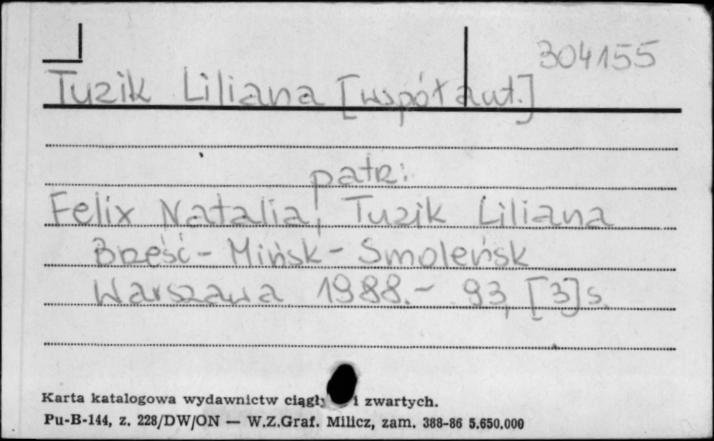 304155
Tuzik Liliana [współaut.]
patrz:
Felix Natalia, Tuzik Liliana
Brześć - Mińsk - Smoleńsk
Warszawa 1988. - 93, [3] s.
Karta katalogowa wydawnictw i zwartych.
Pu-B-144, z. 228/DW/ON — W.Z.Graf. Milicz, zam. 388-86 5.650.000